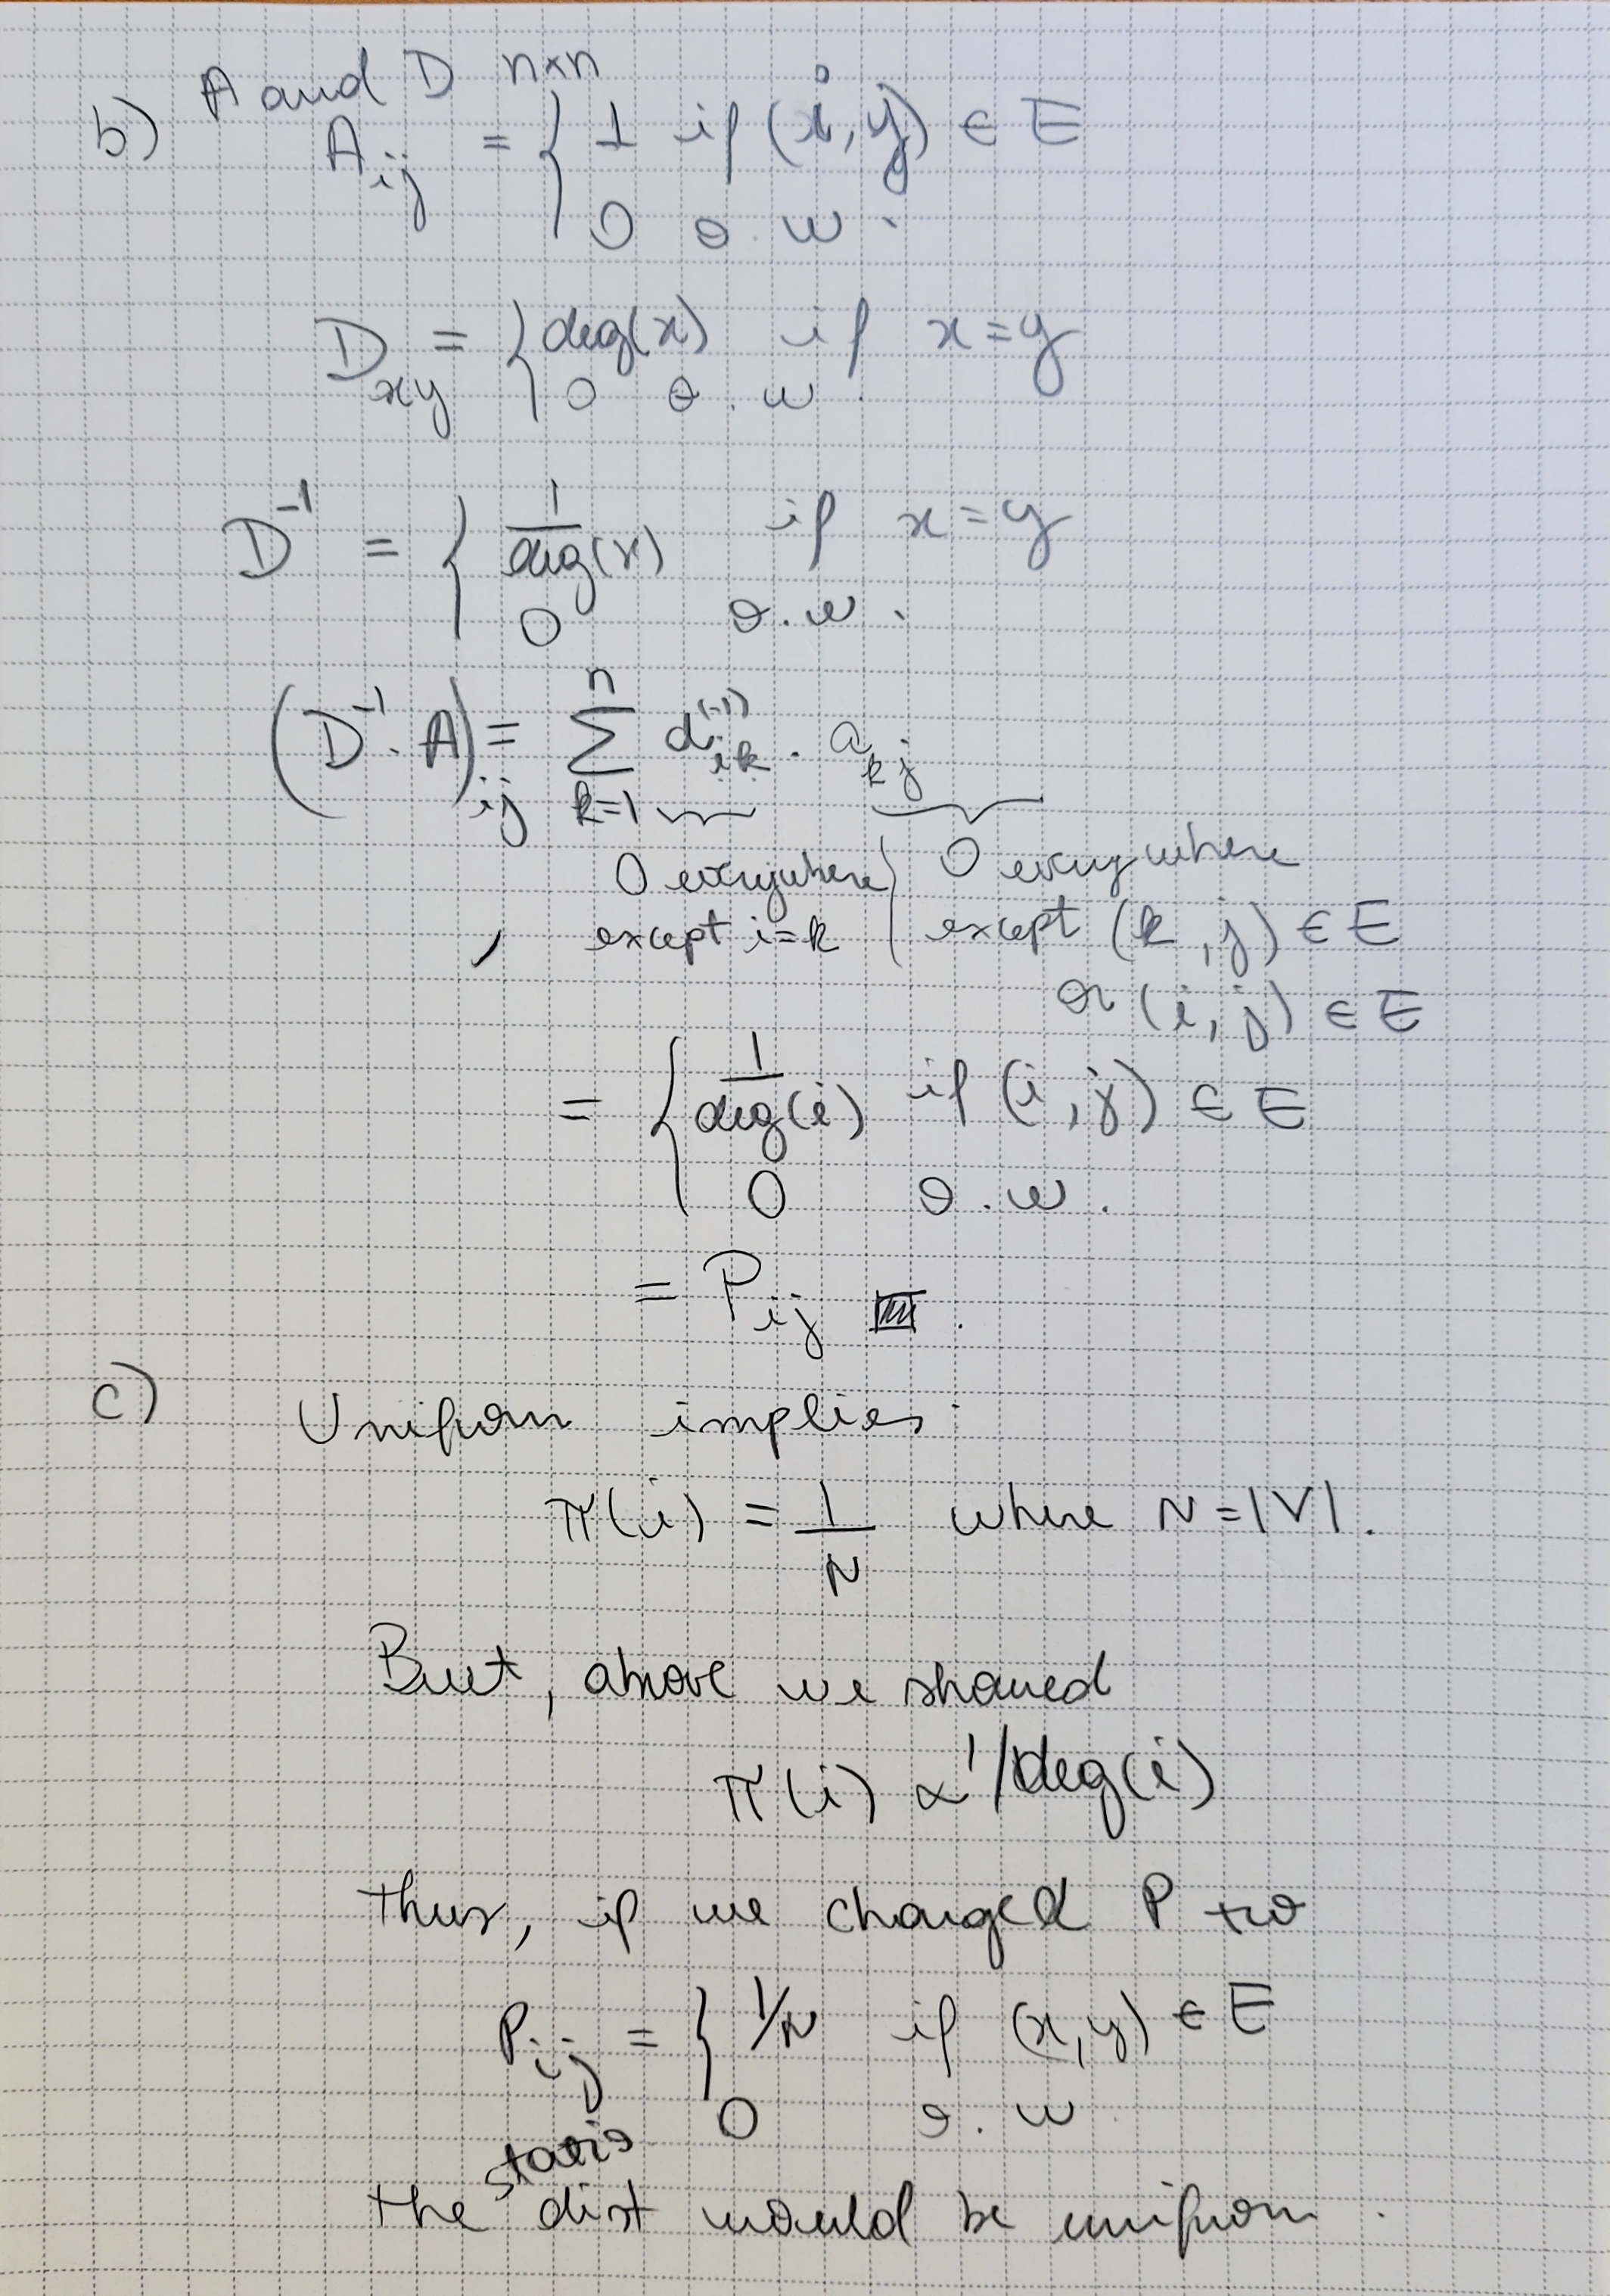 A and D n×n
b) A_ij = { 1 if (i,j) ∈ E
0 o.w.
D_xy = { deg(x) if x=y
0 o.w.
D^-1 = { 1/deg(x) if x=y
0 o.w.
(D^-1 . A)_ij = ∑_{k=1}^{n} d_ik^(-1) . a_kj
0 everywhere except i=k | 0 everywhere except (k,j) ∈ E
or (i,j) ∈ E
= { 1/deg(i) if (i,j) ∈ E
0 o.w.
= P_ij ▨.
c) Uniform implies:
π(i) = 1/N where N=|V|.
But, above we showed
π(i) ∝ 1/deg(i)
thus, if we changed P to
P_ij = { 1/N if (x,y) ∈ E
0 o.w
the statio dist would be uniform.